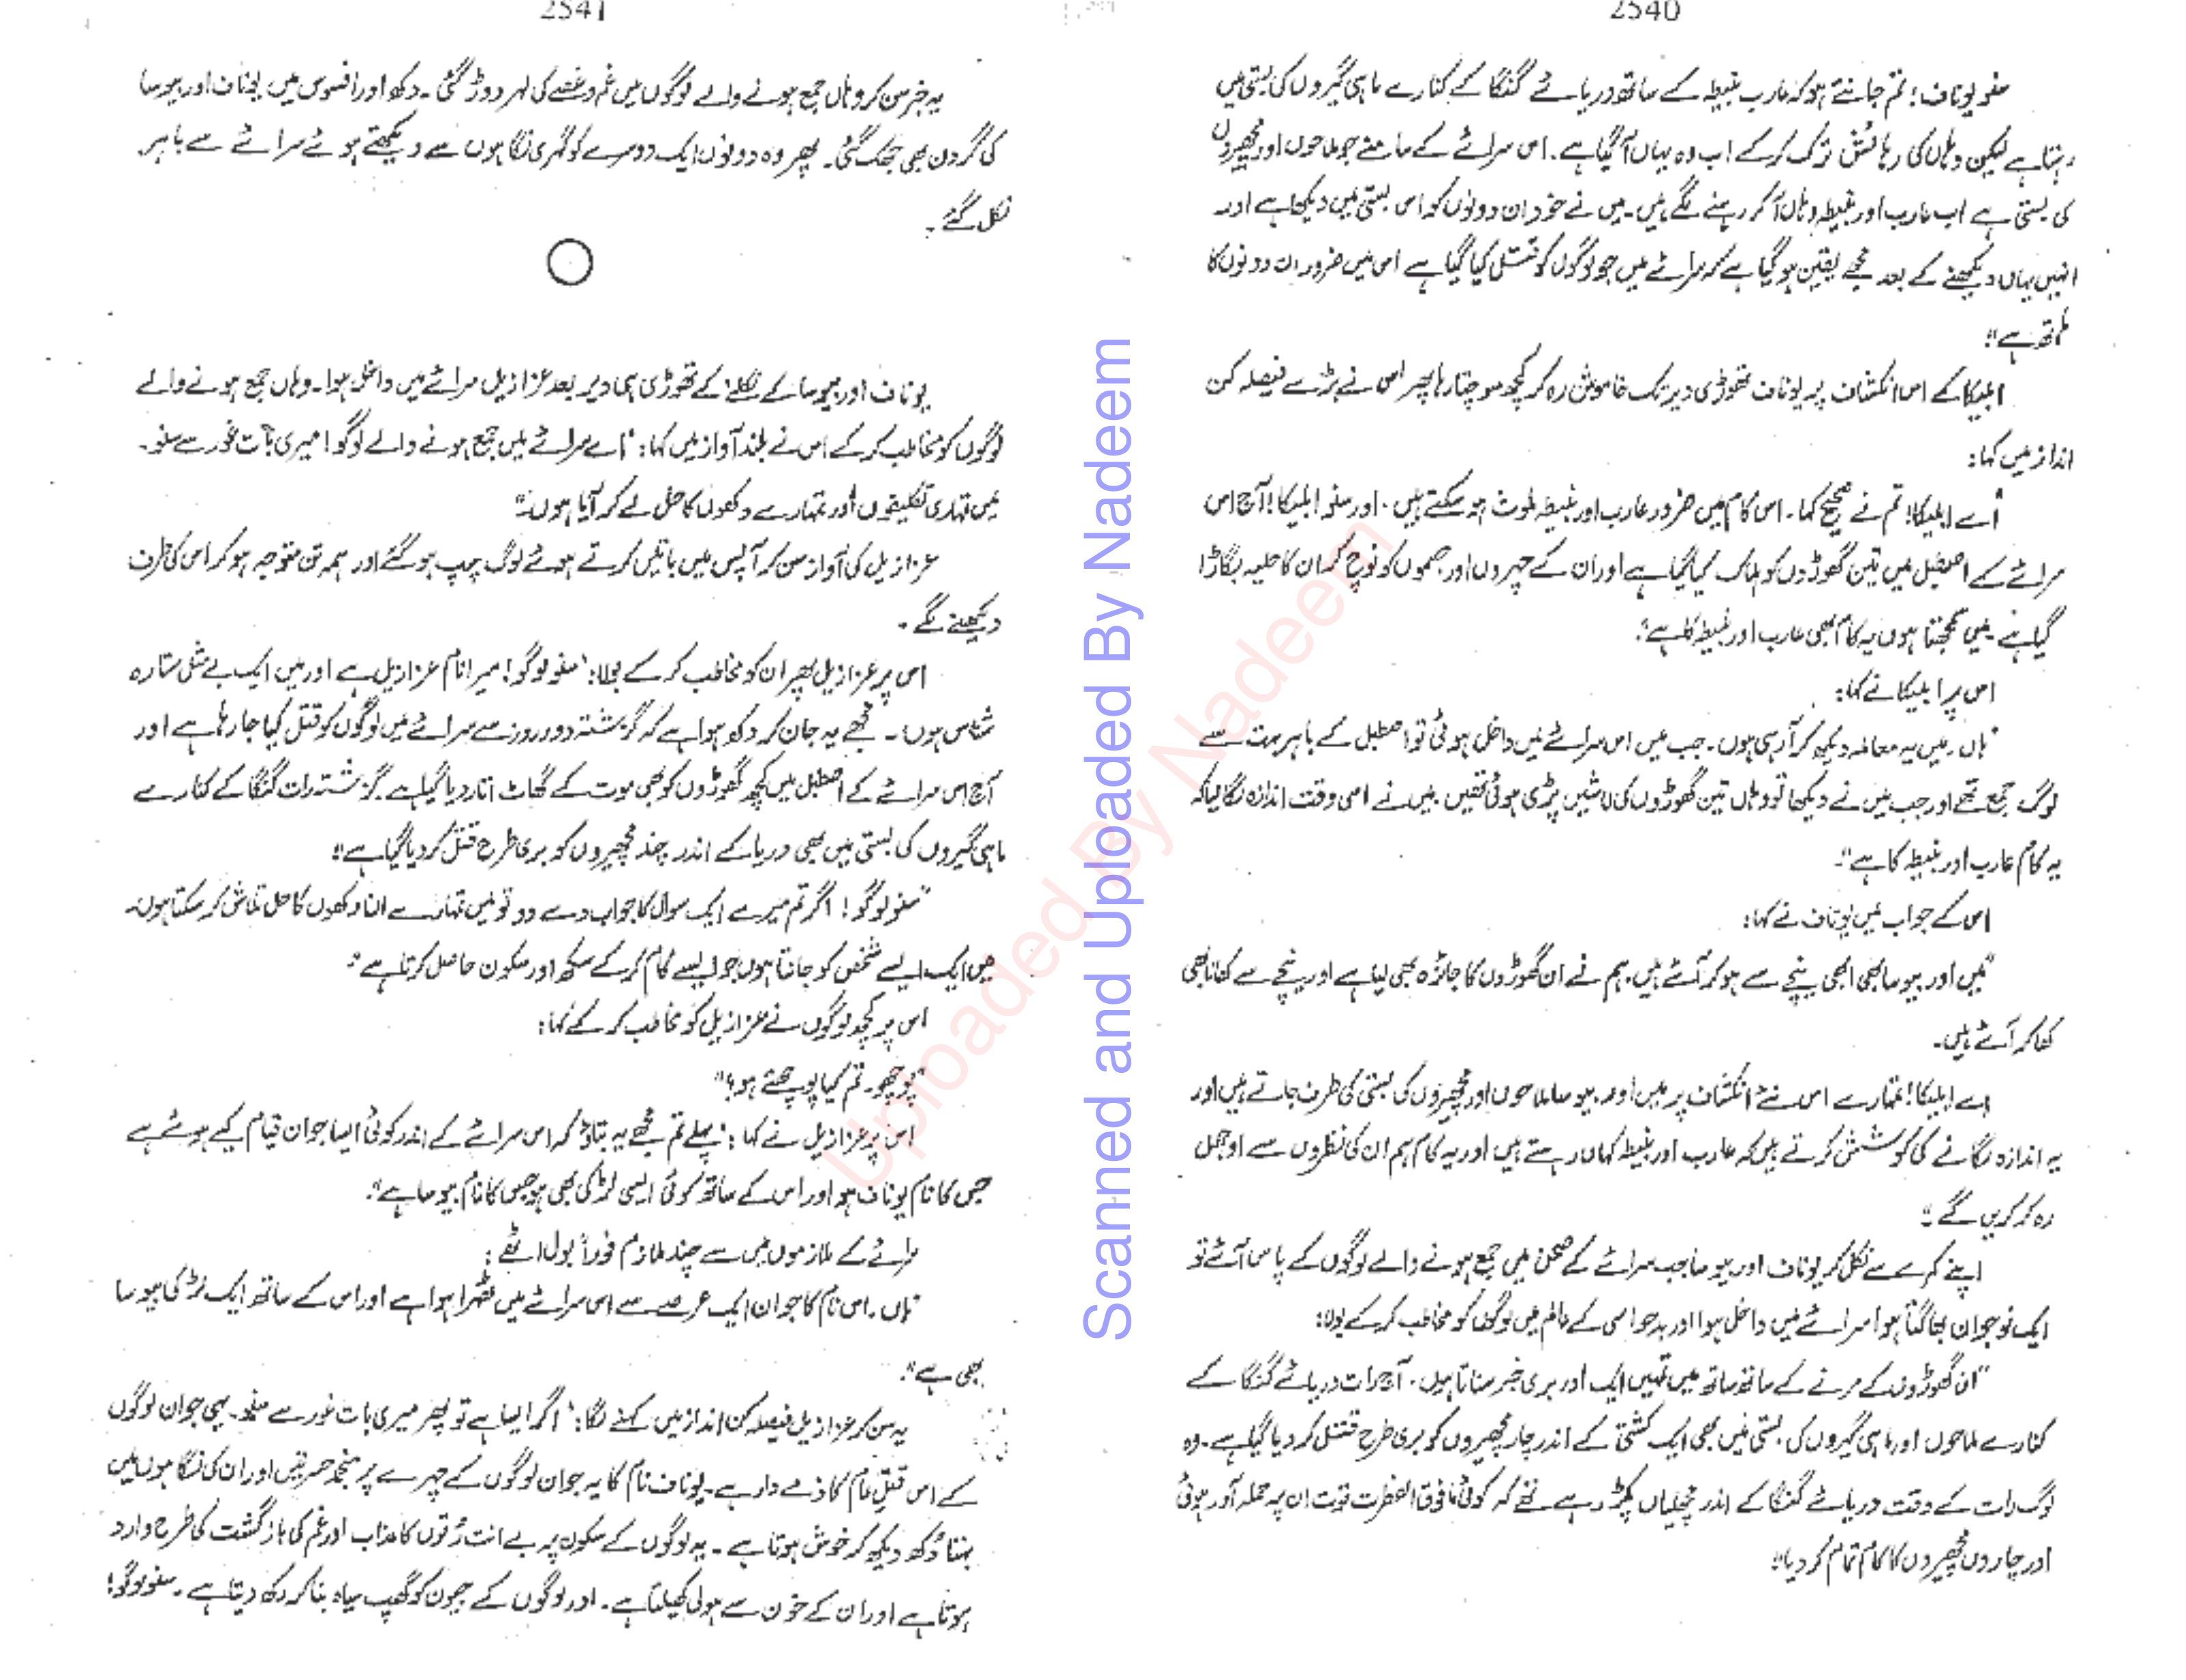 2540
سنو یوناف! تم جانتے ہو کہ عارب نبیطہ کے ساتھ دریائے گنگا کے کنارے ماہی گیروں کی بستی میں
رہتا ہے لیکن وہاں کی رہائش ترک کر کے اب وہ یہاں آ گیا ہے۔ اس سرائے کے سامنے جو ملاحوں اور مچھیروں
کی بستی ہے اب عارب اور نبیطہ وہاں آ کر رہنے لگے ہیں۔ میں نے خود ان دونوں کو اس بستی میں دیکھا ہے اور
انہیں یہاں دیکھنے کے بعد مجھے یقین ہو گیا ہے کہ سرائے میں جو لوگوں کو قتل کیا گیا ہے اس میں ضرور ان دونوں کا
ہاتھ ہے"
ابلیکا کے اس انکشاف پر یوناف تھوڑی دیر تک خاموش رہ کر کچھ سوچتا رہا پھر اس نے بڑے فیصلہ کن
انداز میں کہا:
"اے ابلیکا! تم نے صحیح کہا۔ اس کام میں ضرور عارب اور نبیطہ ملوث ہو سکتے ہیں۔ اور سنو ابلیکا! آج اس
سرائے کے اصطبل میں تین گھوڑوں کو ہلاک کیا گیا ہے اور ان کے چہروں اور جسموں کو نوچ کر ان کا حلیہ بگاڑا
گیا ہے۔ میں سمجھتا ہوں یہ کام بھی عارب اور نبیطہ کا ہے"
اس پر ابلیکا نے کہا:
"ہاں۔ میں یہ معاملہ دیکھ کر آ رہی ہوں۔ جب میں اس سرائے میں داخل ہوئی تو اصطبل کے باہر بہت سے
لوگ جمع تھے اور جب میں نے دیکھا تو وہاں تین گھوڑوں کی لاشیں پڑی ہوئی تھیں۔ میں نے اسی وقت اندازہ لگا لیا کہ
یہ کام عارب اور نبیطہ کا ہے"۔
اس کے جواب میں یوناف نے کہا:
"میں اور بیوسا بھی ابھی نیچے سے ہو کر آئے ہیں۔ ہم نے ان گھوڑوں کا جائزہ بھی لیا ہے اور نیچے سے کھانا بھی
کھا کر آئے ہیں۔
اے ابلیکا! تمہارے اس نئے انکشاف پر میں اور بیوسا ملاحوں اور مچھیروں کی بستی کی طرف جاتے ہیں اور
یہ اندازہ لگانے کی کوشش کرتے ہیں کہ عارب اور نبیطہ کہاں رہتے ہیں اور یہ کام ہم ان کی نظروں سے اوجھل
رہ کر کریں گے"
اپنے کمرے سے نکل کر یوناف اور بیوسا جب سرائے کے صحن میں جمع ہونے والے لوگوں کے پاس آئے تو
ایک نوجوان بھاگتا ہوا سرائے میں داخل ہوا اور بدحواسی کے عالم میں لوگوں کو مخاطب کر کے بولا:
"ان گھوڑوں کے مرنے کے ساتھ ساتھ میں تمہیں ایک اور بری خبر سناتا ہوں۔ آج رات دریائے گنگا کے
کنارے ملاحوں اور ماہی گیروں کی بستی میں بھی ایک کشتی کے اندر چار مچھیروں کو بری طرح قتل کر دیا گیا ہے۔ وہ
لوگ رات کے وقت دریائے گنگا کے اندر مچھلیاں پکڑ رہے تھے کہ کوئی مافوق الفطرت قوت ان پر حملہ آور ہوئی
اور چاروں مچھیروں کا کام تمام کر دیا"
2541
یہ خبر سن کر وہاں جمع ہونے والے لوگوں میں غم و غصے کی لہر دوڑ گئی۔ دکھ اور افسوس میں یوناف اور بیوسا
کی گردن بھی جھک گئی۔ پھر وہ دونوں ایک دوسرے کو گہری نگاہوں سے دیکھتے ہوئے سرائے سے باہر
نکل گئے۔
یوناف اور بیوسا کے نکلنے کے تھوڑی ہی دیر بعد عزازیل سرائے میں داخل ہوا۔ وہاں جمع ہونے والے
لوگوں کو مخاطب کر کے اس نے بلند آواز میں کہا: "اے سرائے میں جمع ہونے والے لوگو! میری بات غور سے سنو۔
میں تمہاری تکلیفوں اور تمہارے دکھوں کا حل لے کر آیا ہوں"
عزازیل کی آواز سن کر آپس میں باتیں کرتے ہوئے لوگ چپ ہو گئے اور ہمہ تن متوجہ ہو کر اس کی طرف
دیکھنے لگے۔
اس پر عزازیل پھر ان کو مخاطب کر کے بولا: "سنو لوگو! میرا نام عزازیل ہے اور میں ایک بے مثل ستارہ
شناس ہوں۔ مجھے یہ جان کر دکھ ہوا ہے کہ گزشتہ دو روز سے سرائے میں لوگوں کو قتل کیا جا رہا ہے اور
آج اس سرائے کے اصطبل میں کچھ گھوڑوں کو بھی موت کے گھاٹ اتار دیا گیا ہے۔ گزشتہ رات گنگا کے کنارے
ماہی گیروں کی بستی میں بھی دریا کے اندر چند مچھیروں کو بری طرح قتل کر دیا گیا ہے"
"سنو لوگو! اگر تم میرے ایک سوال کا جواب دے دو تو میں تمہارے ان دکھوں کا حل تلاش کر سکتا ہوں۔
میں ایک ایسے شخص کو جانتا ہوں جو ایسے کام کر کے سکھ اور سکون حاصل کرتا ہے"
اس پر کچھ لوگوں نے عزازیل کو مخاطب کر کے کہا:
"پوچھو۔ تم کیا پوچھتے ہو؟"
اس پر عزازیل نے کہا: "پہلے تم مجھے یہ بتاؤ کہ اس سرائے کے اندر کوئی ایسا جوان قیام کیے ہوئے ہے
جس کا نام یوناف ہو اور اس کے ساتھ کوئی ایسی لڑکی بھی ہو جس کا نام بیوسا ہے"۔
سرائے کے ملازموں میں سے چند ملازم فوراً بول اٹھے:
"ہاں۔ اس نام کا جوان ایک عرصے سے اس سرائے میں ٹھہرا ہوا ہے اور اس کے ساتھ ایک لڑکی بیوسا
بھی ہے"۔
یہ سن کر عزازیل فیصلہ کن انداز میں کہنے لگا: "اگر ایسا ہے تو پھر میری بات غور سے سنو۔ یہی جوان لوگوں
کے اس قتل عام کا ذمے دار ہے۔ یوناف نام کا یہ جوان لوگوں کے چہرے پر منجمد حسرتیں اور ان کی نگاہوں میں
بہتا دکھ دیکھ کر خوش ہوتا ہے۔ یہ لوگوں کے سکون پر بے انت رُتوں کا عذاب اور غم کی بازگشت کی طرح وارد
ہوتا ہے اور ان کے خون سے ہولی کھیلتا ہے۔ اور لوگوں کے جیون کو گھپ سیاہ بنا کر رکھ دیتا ہے۔ سنو لوگو!
Scanned and Uploaded By Nadeem
Uploaded By Nadeem